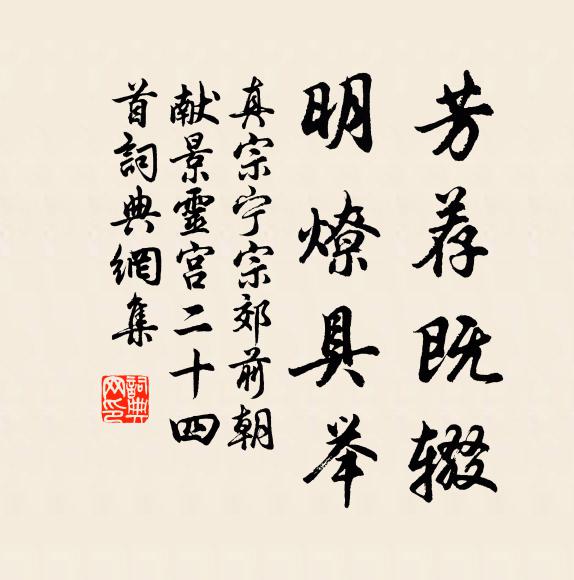 芳荐既辍
明燎具举
真宗宁宗郊前朝
献景靈宫二十四
首詞典網集
詞典网印